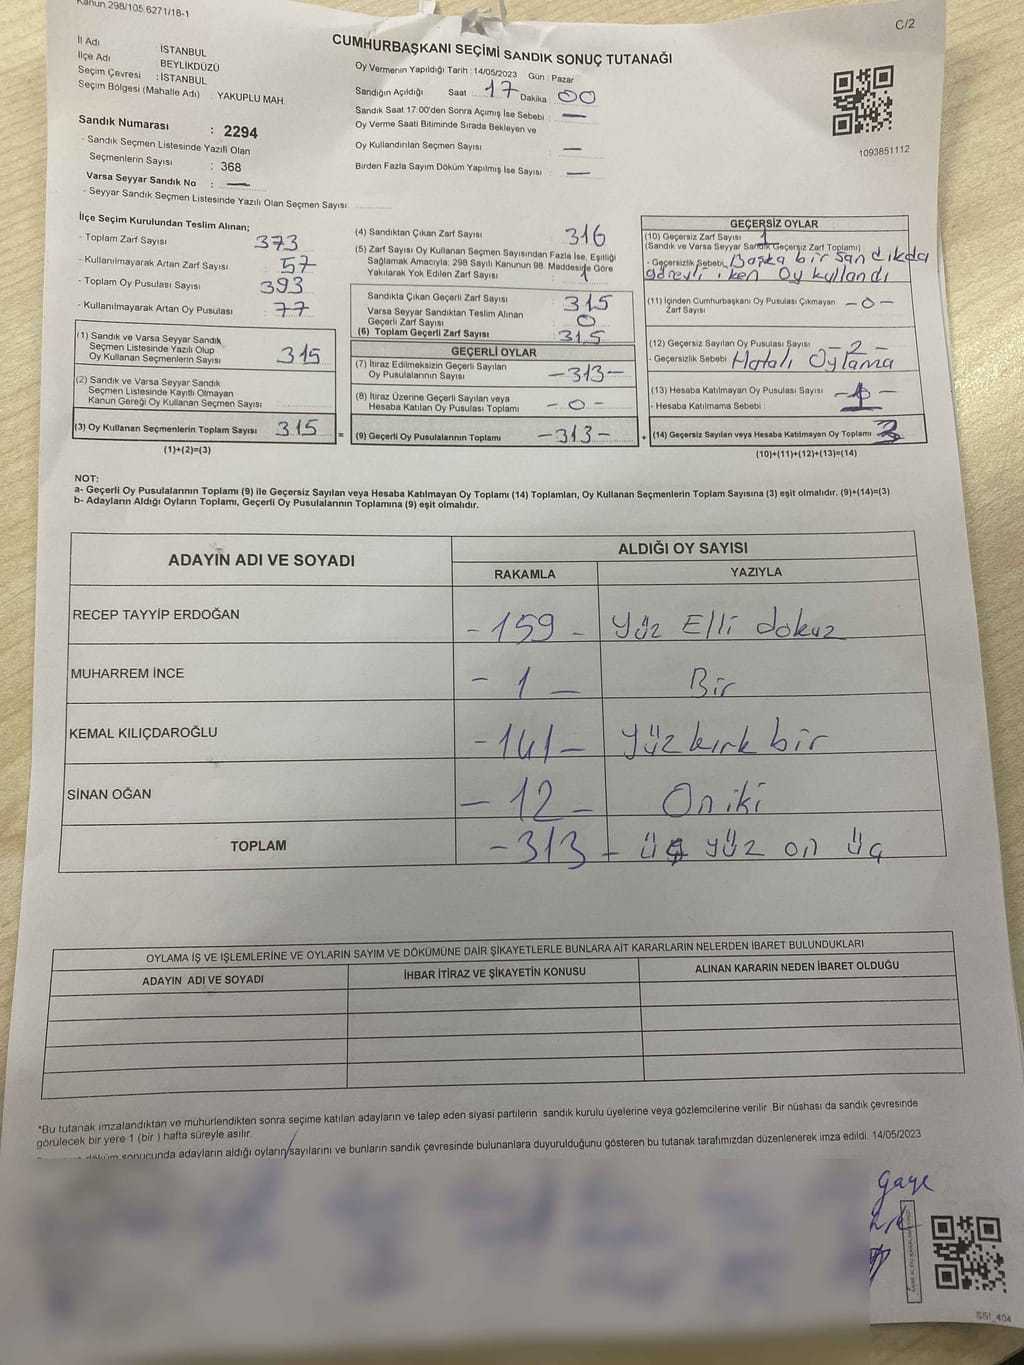 Kanun 298/105 6271/18-1
C/2
CUMHURBAŞKANI SEÇİMİ SANDIK SONUÇ TUTANAĞI
İl Adı : İSTANBUL
İlçe Adı : BEYLİKDÜZÜ
Seçim Çevresi : İSTANBUL
Seçim Bölgesi (Mahalle Adı) : YAKUPLU MAH
Oy Vermenin Yapıldığı Tarih : 14/05/2023 Gün : Pazar
Sandığın Açıldığı Saat 17 Dakika : 00
Sandık Saat 17:00'den Sonra Açımış İse Sebebi : —
Oy Verme Saati Bitiminde Sırada Bekleyen ve
Oy Kullandırılan Seçmen Sayısı : —
Birden Fazla Sayım Döküm Yapılmış İse Sayısı : —
1093851112
Sandık Numarası : 2294
- Sandık Seçmen Listesinde Yazılı Olan
Seçmenlerin Sayısı : 368
Varsa Seyyar Sandık No : —
- Seyyar Sandık Seçmen Listesinde Yazılı Olan Seçmen Sayısı:
İlçe Seçim Kurulundan Teslim Alınan;
- Toplam Zarf Sayısı 373
- Kullanılmayarak Artan Zarf Sayısı : 57
- Toplam Oy Pusulası Sayısı : 393
- Kullanılmayarak Artan Oy Pusulası : 77
(1) Sandık ve Varsa Seyyar Sandık
Seçmen Listesinde Yazılı Olup
Oy Kullanan Seçmenlerin Sayısı : 315
(2) Sandık ve Varsa Seyyar Sandık
Seçmen Listesinde Kayıtlı Olmayan
Kanun Gereği Oy Kullanan Seçmen Sayısı :
(3) Oy Kullanan Seçmenlerin Toplam Sayısı : 315
(1)+(2)=(3)
(4) Sandıktan Çıkan Zarf Sayısı 316
(5) Zarf Sayısı Oy Kullanan Seçmen Sayısından Fazla İse, Eşitliği
Sağlamak Amacıyla; 298 Sayılı Kanunun 98. Maddesine Göre
Yakılarak Yok Edilen Zarf Sayısı 1
Sandıkta Çıkan Geçerli Zarf Sayısı : 315
Varsa Seyyar Sandıktan Teslim Alınan
Geçerli Zarf Sayısı : 0
(6) Toplam Geçerli Zarf Sayısı : 315
GEÇERLİ OYLAR
(7) İtiraz Edilmeksizin Geçerli Sayılan
Oy Pusulalarının Sayısı : -313-
(8) İtiraz Üzerine Geçerli Sayılan veya
Hesaba Katılan Oy Pusulası Toplamı : -0-
= (9) Geçerli Oy Pusulalarının Toplamı -313-
GEÇERSİZ OYLAR
(10) Geçersiz Zarf Sayısı : 1
(Sandık ve Varsa Seyyar Sandık Geçersiz Zarf Toplamı)
- Geçersizlik Sebebi : Başka bir sandıkda
görevli iken Oy kullandı
(11) İçinden Cumhurbaşkanı Oy Pusulası Çıkmayan
Zarf Sayısı : -0-
(12) Geçersiz Sayılan Oy Pusulası Sayısı : -2-
- Geçersizlik Sebebi : Hatalı Oylama
(13) Hesaba Katılmayan Oy Pusulası Sayısı
- Hesaba Katılmama Sebebi :
+ (14) Geçersiz Sayılan veya Hesaba Katılmayan Oy Toplamı :
(10)+(11)+(12)+(13)=(14)
NOT:
a- Geçerli Oy Pusulalarının Toplamı (9) ile Geçersiz Sayılan veya Hesaba Katılmayan Oy Toplamı (14) Toplamları, Oy Kullanan Seçmenlerin Toplam Sayısına (3) eşit olmalıdır. (9)+(14)=(3)
b- Adayların Aldığı Oyların Toplamı, Geçerli Oy Pusulalarının Toplamına (9) eşit olmalıdır.
ADAYIN ADI VE SOYADI
ALDIĞI OY SAYISI
RAKAMLA YAZIYLA
RECEP TAYYİP ERDOĞAN -159- Yüz Elli dokuz
MUHARREM İNCE -1- Bir
KEMAL KILIÇDAROĞLU -141- Yüz kırk bir
SİNAN OĞAN -12- On iki
TOPLAM -313- üç yüz on üç
OYLAMA İŞ VE İŞLEMLERİNE VE OYLARIN SAYIM VE DÖKÜMÜNE DAİR ŞİKAYETLERLE BUNLARA AİT KARARLARIN NELERDEN İBARET BULUNDUKLARI
ADAYIN ADI VE SOYADI İHBAR İTİRAZ VE ŞİKAYETİN KONUSU ALINAN KARARIN NEDEN İBARET OLDUĞU
*Bu tutanak imzalandıktan ve mühürlendikten sonra seçime katılan adayların ve talep eden siyasi partilerin sandık kurulu üyelerine veya gözlemcilerine verilir. Bir nüshası da sandık çevresinde
görülecek bir yere 1 (bir) hafta süreyle asılır.
döküm sonucunda adayların aldığı oyların sayılarını ve bunların sandık çevresinde bulunanlara duyurulduğunu gösteren bu tutanak tarafımızdan düzenlenerek imza edildi. 14/05/2023
Gaye
SSI_404